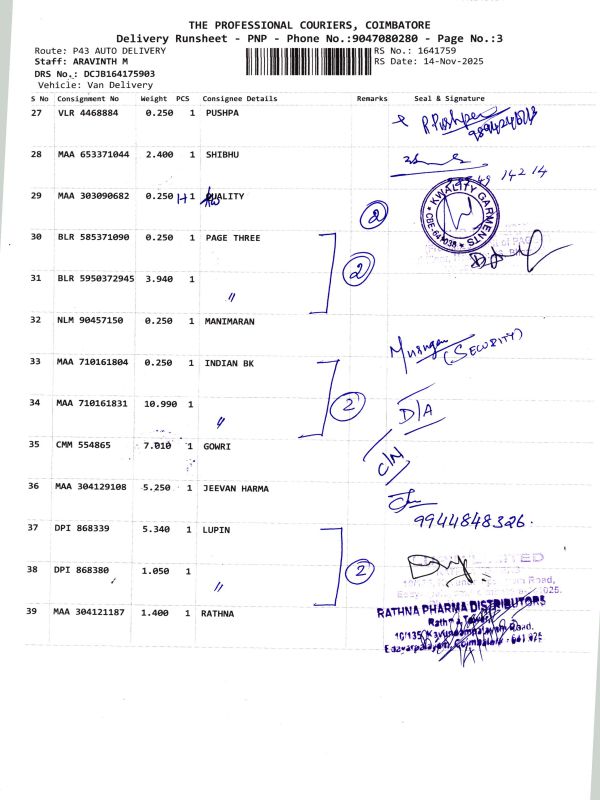 THE PROFESSIONAL COURIERS, COIMBATORE
Delivery Runsheet - PNP - Phone No.:9047080280 - Page No.:3
Route: P43 AUTO DELIVERY RS No.: 1641759
Staff: ARAVINTH M RS Date: 14-Nov-2025
DRS No.: DCJB164175903
Vehicle: Van Delivery
S No Consignment No Weight PCS Consignee Details Remarks Seal & Signature
27 VLR 4468884 0.250 1 PUSHPA
28 MAA 653371044 2.400 1 SHIBHU
14214
29 MAA 303090682 0.250 H 1 QUALITY 2
KWALITY GARMENTS
30 BLR 585371090 0.250 1 PAGE THREE
2
31 BLR 5950372945 3.940 1 〃
32 NLM 90457150 0.250 1 MANIMARAN
Murugan (SECURITY)
33 MAA 710161804 0.250 1 INDIAN BK
2
34 MAA 710161831 10.990 1 〃 D/A
35 CMM 554865 7.010 1 GOWRI C/N
36 MAA 304129108 5.250 1 JEEVAN HARMA
9944848326.
37 DPI 868339 5.340 1 LUPIN
38 DPI 868380 1.050 1 〃 2
39 MAA 304121187 1.400 1 RATHNA
RATHNA PHARMA DISTRIBUTORS
Rathna Tower,
10/135, Kavundampalayam Road,
Edayarpalayam, Coimbatore - 641 025